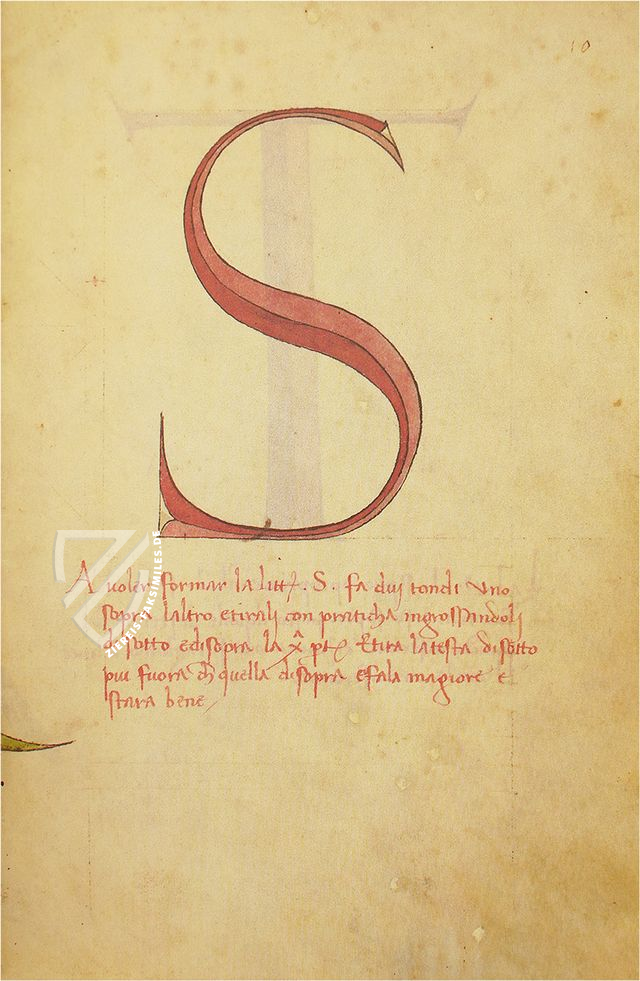 10
S
A voler formar la litt̃. S. fa dui tondi Vno
sopra laltro e tirali con praticha ingrossandoli
di sotto e disopra la x̂ pt̃ Et tira la testa di sotto
piu fuora ch̃ quella disopra e fala magiore e
stara bene
ZIEREIS FAKSIMILES.DE